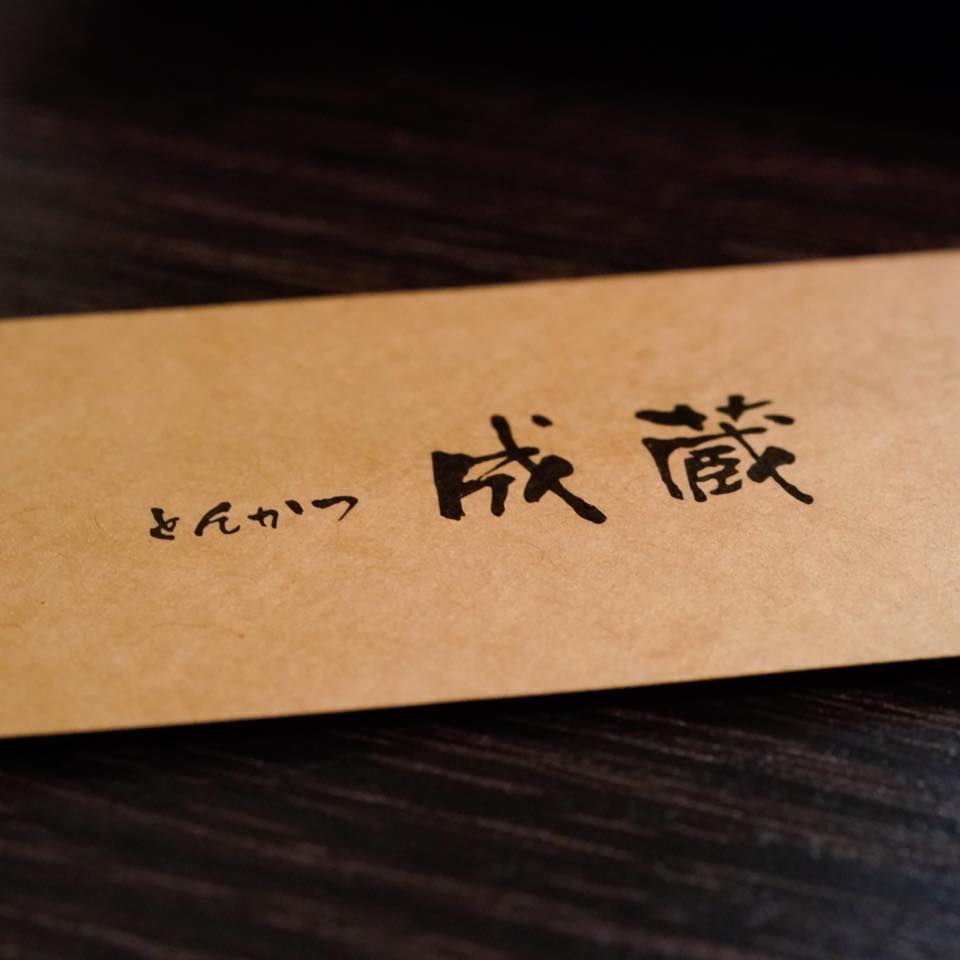 とんかつ 成蔵